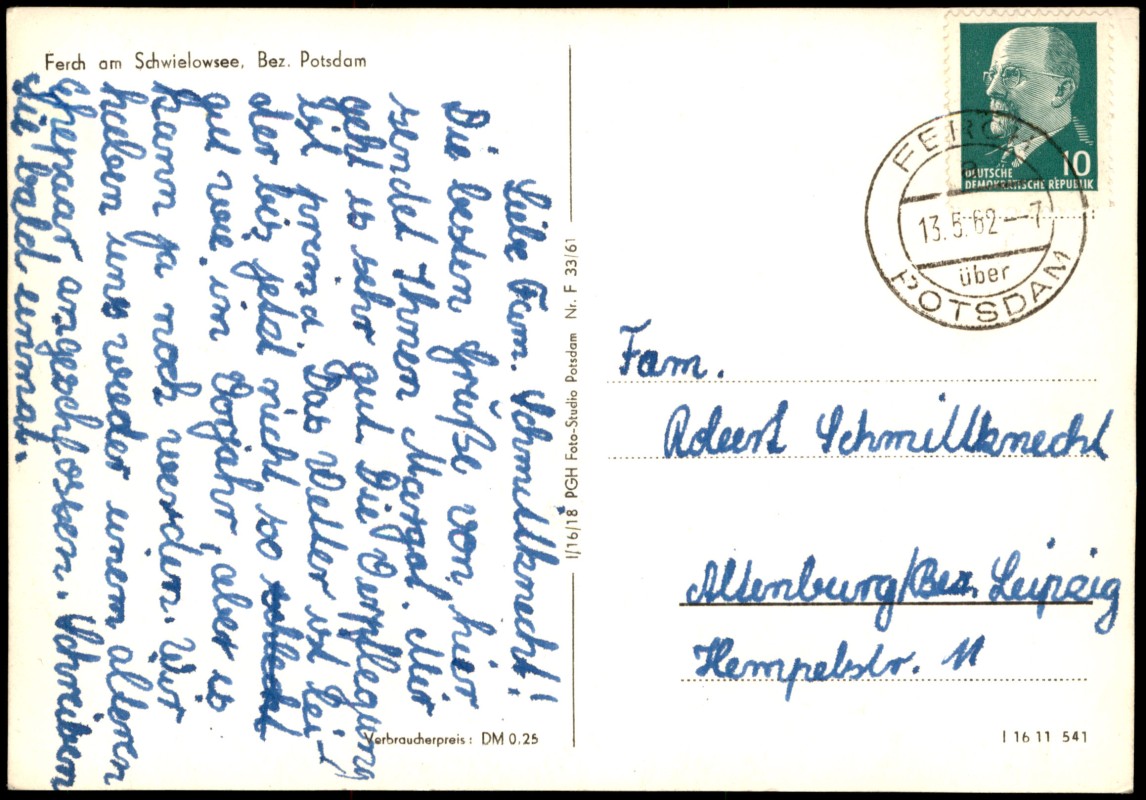 Ferch am Schwielowsee, Bez. Potsdam
Liebe Fam. Schmittknecht!
Die besten Grüße von hier
sendet Ihnen Margot. Mir
geht es sehr gut. Die Verpflegung
ist prima. Das Wetter ist lei-
der bis jetzt nicht so schlecht
gut wie im Vorjahr, aber es
kann ja noch werden. Wir
haben uns wieder einem älteren
Ehepaar angeschlossen. Schreiben
Sie bald einmal.
Verbraucherpreis: DM 0.25
I/16/18 PGH Foto-Studio Potsdam Nr. F 33/61
10
DEUTSCHE
DEMOKRATISCHE REPUBLIK
FERCH
a
13.5.62--7
über
POTSDAM
Fam.
Robert Schmittknecht
Altenburg/Bez. Leipzig
Hempelstr. 11
I 16 11 541